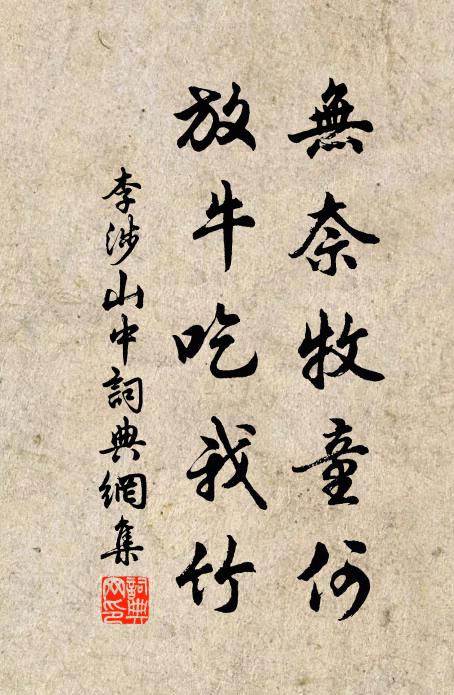 無奈牧童何
放牛吃我竹
李涉山中詞典網集
詞典網印